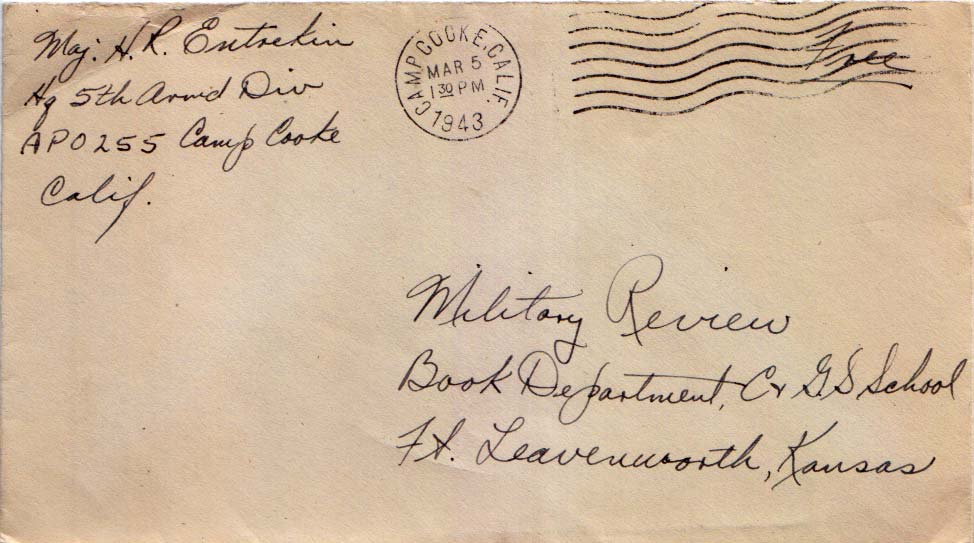 Maj. H. R. Entrekin
Hq 5th Armd Div
APO 255 Camp Cooke
Calif.
CAMP COOKE, CALIF.
MAR 5
1 30 PM
1943
Free
Military Review
Book Department, C & G.S School
Ft. Leavenworth, Kansas